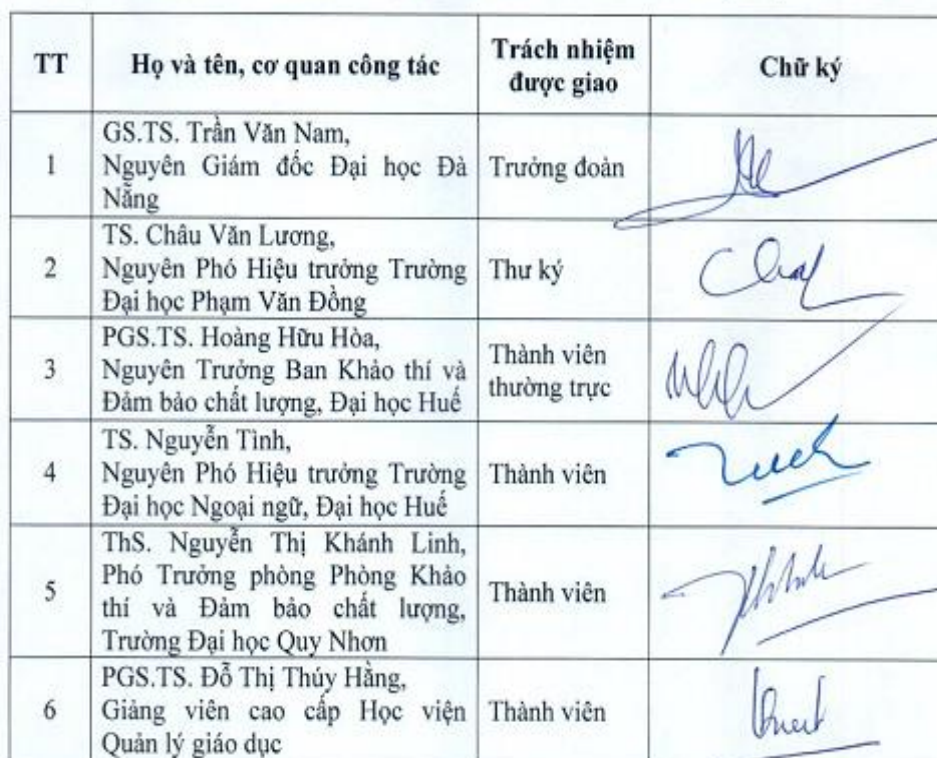 TT
Họ và tên, cơ quan công tác
Trách nhiệm
được giao
Chữ ký
1
GS.TS. Trần Văn Nam,
Nguyên Giám đốc Đại học Đà
Nẵng
Trưởng đoàn
2
TS. Châu Văn Lương,
Nguyên Phó Hiệu trưởng Trường
Đại học Phạm Văn Đồng
Thư ký
3
PGS.TS. Hoàng Hữu Hòa,
Nguyên Trưởng Ban Khảo thí và
Đảm bảo chất lượng, Đại học Huế
Thành viên
thường trực
4
TS. Nguyễn Tình,
Nguyên Phó Hiệu trưởng Trường
Đại học Ngoại ngữ, Đại học Huế
Thành viên
5
ThS. Nguyễn Thị Khánh Linh,
Phó Trưởng phòng Phòng Khảo
thí và Đảm bảo chất lượng,
Trường Đại học Quy Nhơn
Thành viên
6
PGS.TS. Đỗ Thị Thúy Hằng,
Giảng viên cao cấp Học viện
Quản lý giáo dục
Thành viên